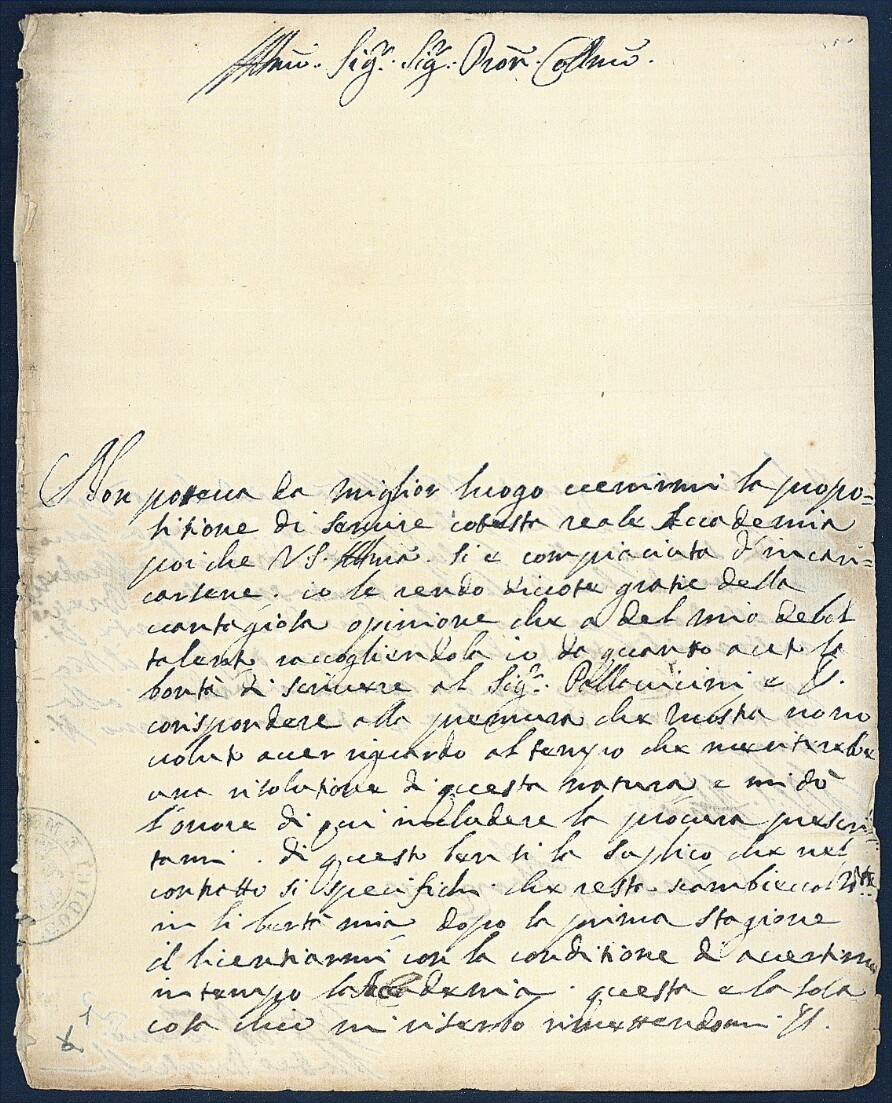 Illmo. Sigr. Sigr. Pron. Collmo.
Non poteua da miglior luogo uenirmi la propo=
sitione di seruire cotesta reale Accademia
poi che VS. Illma. si e compiaciuta d'incari=
carsene. io le rendo diuote gratie della
uantagiosa opinione che a del mio debol
talento raccogliendola io da quanto a
bontà di scriuere al Sigr. Pallauicini e
corispondere alla premura che mostra non o
uoluto auer riguardo al tempo che meriterebbe
una risolutione di questa natura e mi dò
l'onore di qui includere la procura prescri=
tami. di questo ben si la suplico che nel
contratto si specifichi che resta
in libertà mia dopo la prima stagione
il licentiarmi con la conditione di auertirne
in tempo la Accademia. questa e la sola
cosa che mi riserbo rimettendomi